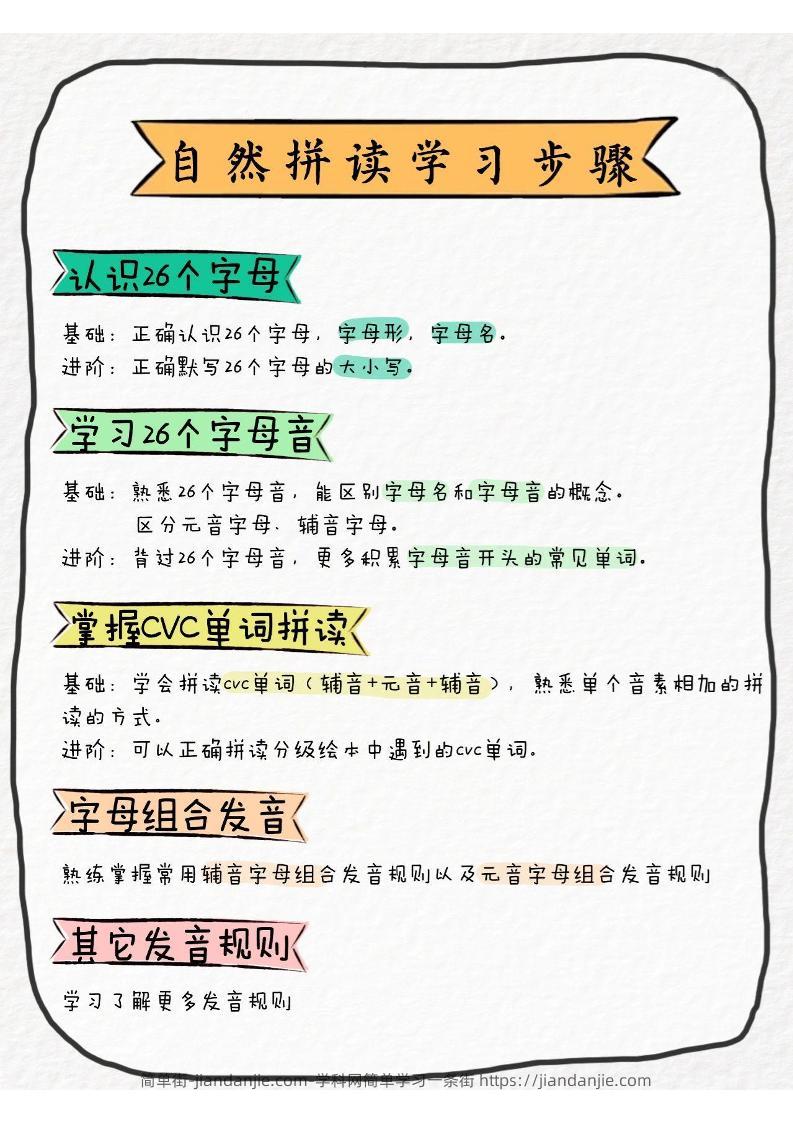 自然拼读学习步骤
认识26个字母
基础：正确认识26个字母，字母形，字母名。
进阶：正确默写26个字母的大小写。
学习26个字母音
基础：熟悉26个字母音，能区别字母名和字母音的概念。
区分元音字母、辅音字母。
进阶：背过26个字母音，更多积累字母音开头的常见单词。
掌握CVC单词拼读
基础：学会拼读cvc单词（辅音+元音+辅音），熟悉单个音素相加的拼
读的方式。
进阶：可以正确拼读分级绘本中遇到的cvc单词。
字母组合发音
熟练掌握常用辅音字母组合发音规则以及元音字母组合发音规则
其它发音规则
学习了解更多发音规则
简单街-jiandanjie.com-学科网简单学习一条街 https://jiandanjie.com